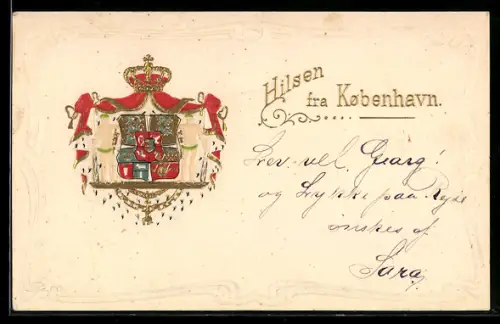 Hilsen
fra København.
Lev vel Georg!
og Lykke paa Rejse
ønskes af
Sara